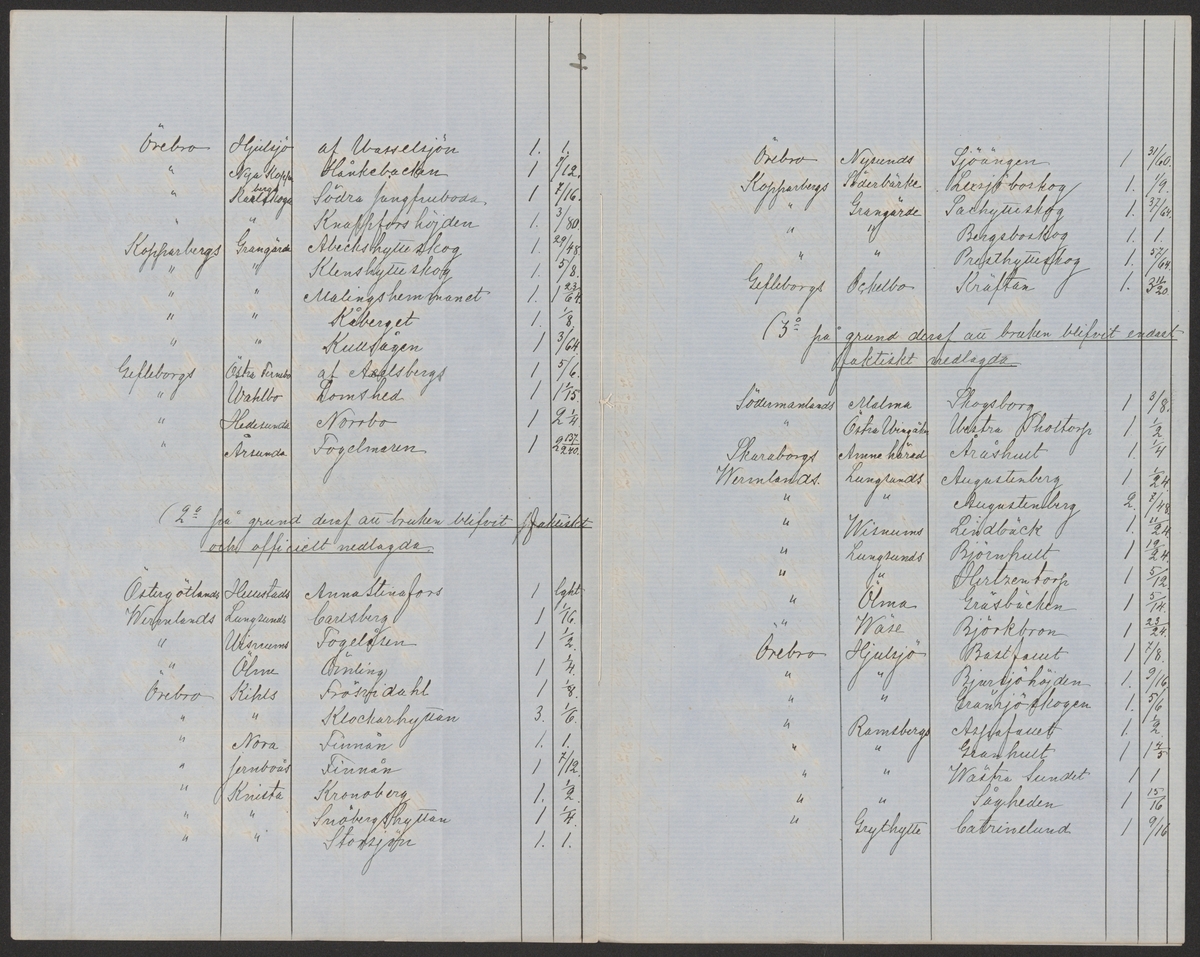 Örebro Hjulsjö af Wasselsjön 1. 1.
" Nya Koppa berg Hånkebacken 1 7/12.
" Karlskoga Södra Jungfruboda 1 7/16.
" " Knappforshöjden 1. 3/80
Kopparbergs Grangärde Abeckshytteskog 1. 29/48
" " Klenshytteskog 1. 5/8.
" " Malingshemmanet 1 23/64
" " Kåberget 1. 1/8
" " Kullsågen 1 3/64
Gefleborgs Östra Fernebo af Axelsbergs 1 5/6.
" Wahlbo Lomshed 1 1 1/15.
" Hedesunda Norrbo 1 2 1/4
" Årsunda Fogelmaren 1 2 137/240.
(2o på grund deraf att bruken blifvit faktiskt
och officielt nedlagda.
Östergötlands Hellestads Annastinafors 1 lght
Wermlands Lungsunds Carlsberg 1 1/16.
" Wisnums Fogelåsen 1 1/2.
" Ölme Önling 1 1/4.
Örebro Kihls Frösvidahl 1 1/8.
" " Klockarhyttan 3. 1/6.
" Nora Finnån 1. 1.
" Jernboås Finnån 1 7/12.
" Knista Kronoberg 1. 1/2
" " Snöbergshyttan 1 1/4.
" " Storsjön 1. 1.
Örebro Nysunds Sjöängen 1 31/60.
Kopparbergs Söderbärke Lexsjöboskog 1. 1/9.
" Grangärde Lachytteskog 1. 37/64.
" " Bergsboskog 1. 1.
" " Presthytteskog 1. 57/64
Gefleborgs Ockelbo Kräftan 1. 3 11/20.
(3o på grund deraf att bruken blifvit endast
faktiskt nedlagda
Södermanlands Malma Skogsborg 1 3/8.
" Östra Wingåker Westra Dholtorp 1 1/2
Skaraborgs Amnehärad Åråshult 1. 1/4
Wermlands. Lungsunds Augustenberg 1 1/24
" " Augustenberg 2. 7/48
" Wisnums Lindbäck 1. 11/24
" Lungsunds Björnhult 1 19/24.
" " Hertzentorp 1 5/12
" Ölma Gräsbäcken 1 5/14.
" Wäse Björkbron 1 23/24.
Örebro Hjulsjö Bastfallet 1 7/8.
" " Bjursjöhöjden 1. 9/16
" " Gränsjöskogen 1. 5/6
" Ramsbergs Aspafallet 1 1/2
" " Granhult 1 1 4/5
" " Wästra Sundet 1 1
" " Sågheden 1 15/16
" Grythytte Catrinelund 1 9/16